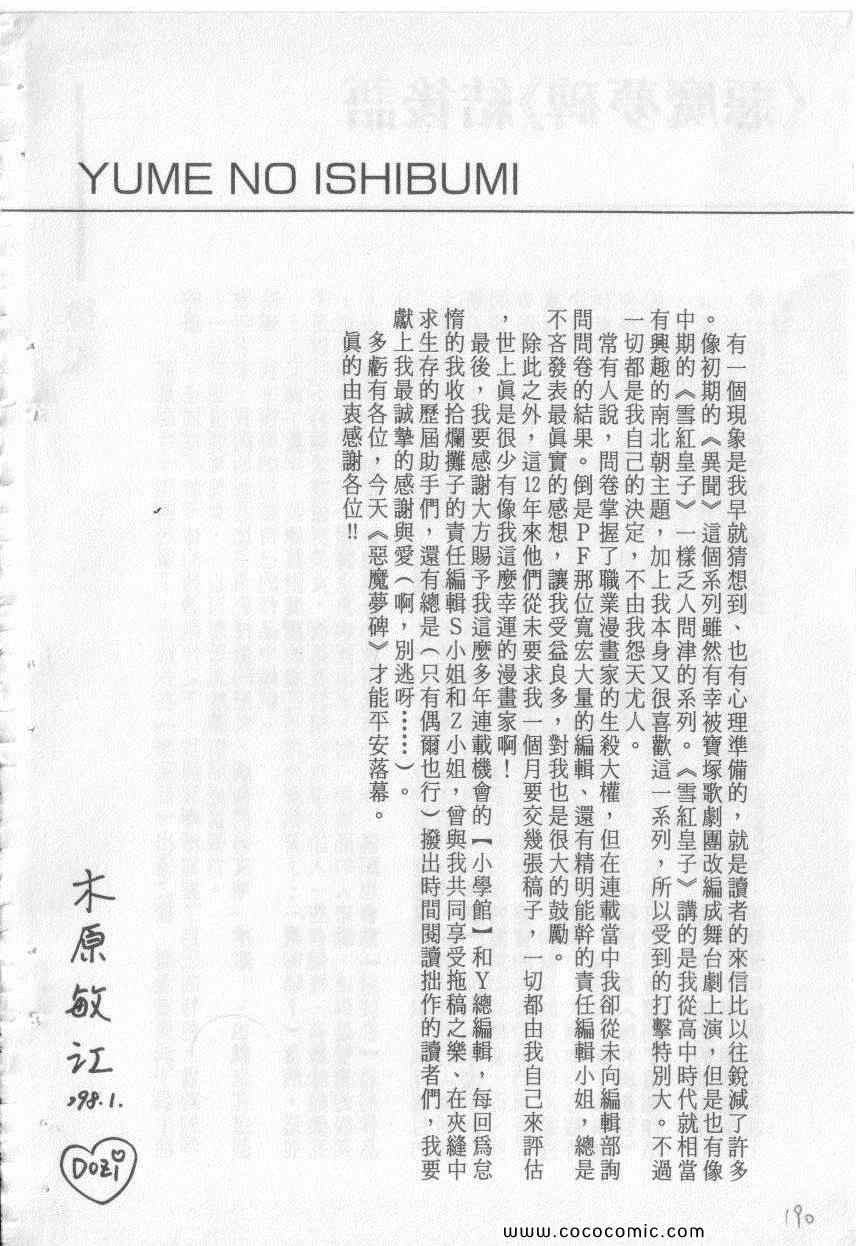 YUME NO ISHIBUMI
有一個現象是我早就猜想到、也有心理準備的，就是讀者的來信比以往銳減了許多
。像初期的《異聞》這個系列雖然有幸被寶塚歌劇團改編成舞台劇上演，但是也有像
中期的《雪紅皇子》一樣乏人問津的系列。《雪紅皇子》講的是我從高中時代就相當
有興趣的南北朝主題，加上我本身又很喜歡這一系列，所以受到的打擊特別大。不過
一切都是我自己的決定，不由我怨天尤人。
常有人說，問卷掌握了職業漫畫家的生殺大權，但在連載當中我卻從未向編輯部詢
問問卷的結果。倒是ＰＦ那位寬宏大量的編輯、還有精明能幹的責任編輯小姐，總是
不吝發表最眞實的感想，讓我受益良多，對我也是很大的鼓勵。
除此之外，這12年來他們從未要求我一個月要交幾張稿子，一切都由我自己來評估
，世上眞是很少有像我這麼幸運的漫畫家啊！
最後，我要感謝大方賜予我這麼多年連載機會的【小學館】和Ｙ總編輯，每回爲怠
惰的我收拾爛攤子的責任編輯Ｓ小姐和Ｚ小姐，曾與我共同享受拖稿之樂、在夾縫中
求生存的歷屆助手們，還有總是（只有偶爾也行）撥出時間閱讀拙作的讀者們，我要
獻上我最誠摯的感謝與愛（啊，別逃呀……）。
多虧有各位，今天《惡魔夢碑》才能平安落幕。
眞的由衷感謝各位!!
木原敏江
'98.1.
DOZi
190
www.cococomic.com